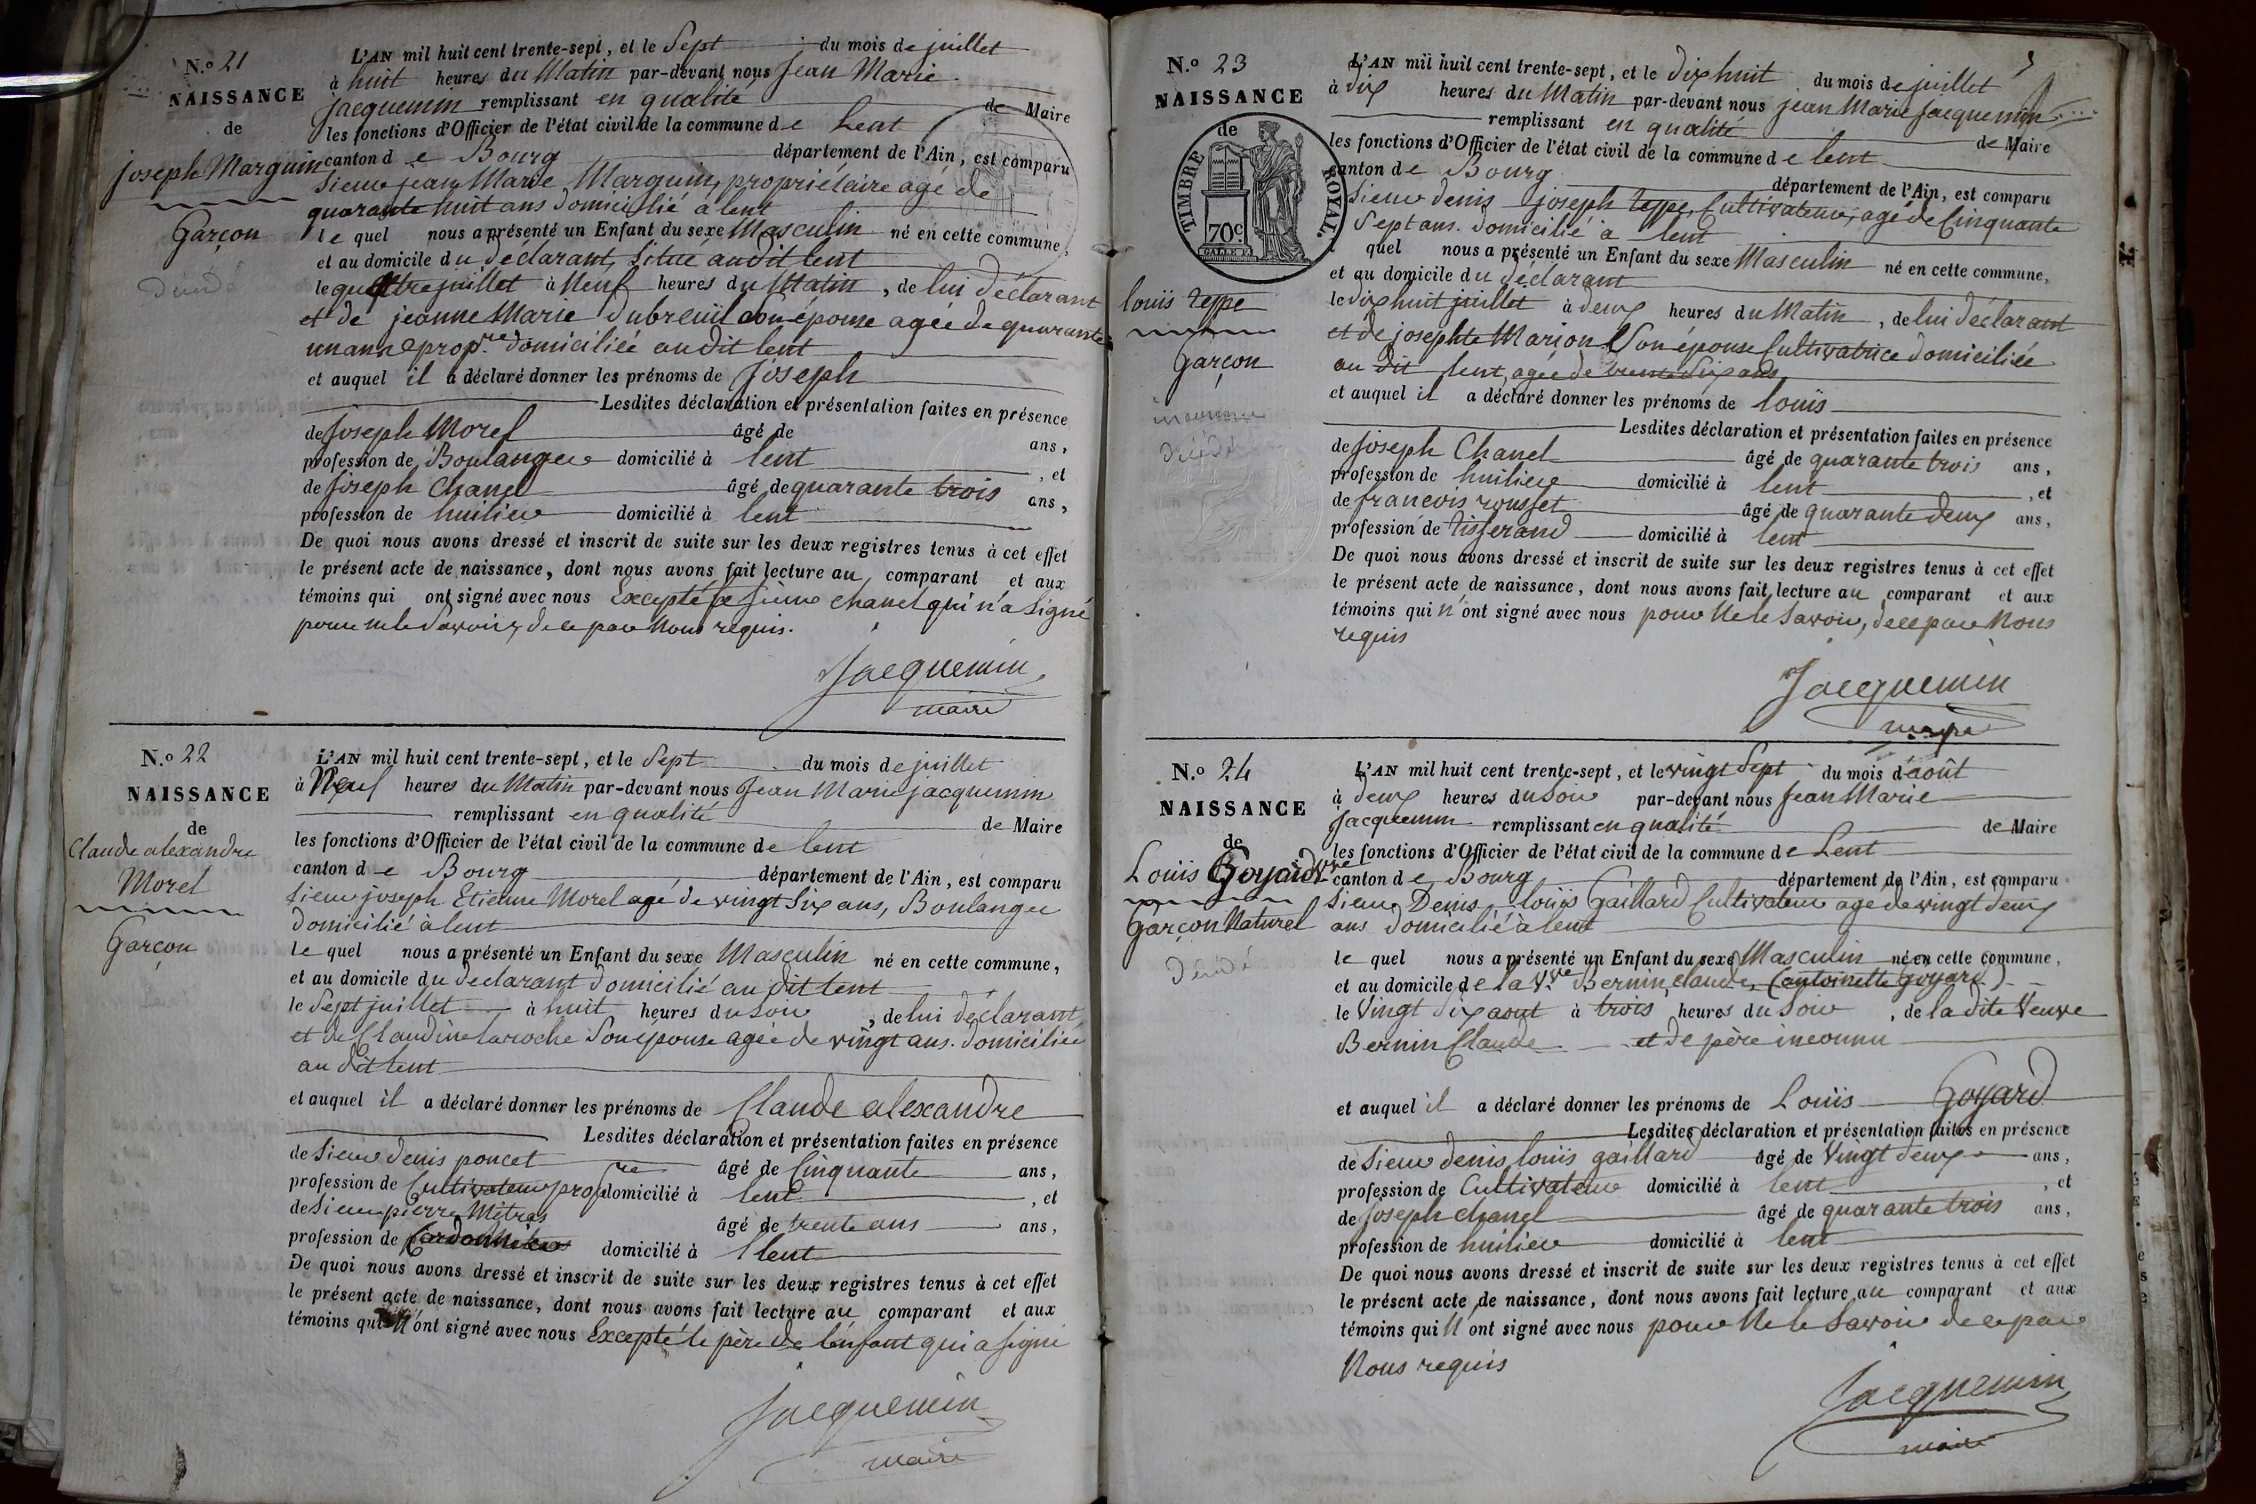 N.o 21
NAISSANCE
de
joseph Marguin
Garçon
décédé
L'AN mil huit cent trente-sept, et le Sept du mois de juillet
à huit heures du Matin par-devant nous Jean Marie
jacquemin remplissant en qualité de Maire
les fonctions d'Officier de l'état civil de la commune de Lent
canton de Bourg département de l'Ain, est comparu
Sieur jean Marie Marguin, propriétaire agé de
quarante huit ans domicilié à lent
le quel nous a présenté un Enfant du sexe Masculin né en cette commune,
et au domicile du déclarant, situé audit lent
le quatre juillet à Neuf heures du Matin, de lui déclarant
et de jeanne Marie dubreuil son épouse agée de quarante
un ans propre domiciliée audit lent
et auquel il a déclaré donner les prénoms de Joseph
Lesdites déclaration et présentation faites en présence
de Joseph Morel âgé de ans,
profession de Boulanger domicilié à lent, et
de Joseph Chanel âgé de quarante trois ans,
profession de huilier domicilié à lent
De quoi nous avons dressé et inscrit de suite sur les deux registres tenus à cet effet
le présent acte de naissance, dont nous avons fait lecture au comparant et aux
témoins qui ont signé avec nous Excepté le sieur chanel qui n'a signé
pour ne le Savoir, de ce par Nous requis.
Jacquemin
maire
N.o 22
NAISSANCE
de
Claude alexandre
Morel
Garçon
L'AN mil huit cent trente-sept, et le Sept du mois de juillet
à Neuf heures du Matin par-devant nous Jean Marie jacquemin
remplissant en qualité de Maire
les fonctions d'Officier de l'état civil de la commune de lent
canton de Bourg département de l'Ain, est comparu
sieur joseph Etienne Morel agé de vingt Six ans, Boulanger
domicilié à lent
le quel nous a présenté un Enfant du sexe Masculin né en cette commune,
et au domicile du declarant domicilié au dit lent
le Sept juillet à huit heures du Soir, de lui déclarant,
et de Claudine Laroche Son épouse agée de vingt ans. domiciliée
au dit lent
et auquel il a déclaré donner les prénoms de Claude alexandre
Lesdites déclaration et présentation faites en présence
de Sieur denis poncet âgé de Cinquante ans,
profession de Cultivateur propre domicilié à lent, et
de Sieur pierre Métras âgé de trente ans ans,
profession de Cordonnier domicilié à lent
De quoi nous avons dressé et inscrit de suite sur les deux registres tenus à cet effet
le présent acte de naissance, dont nous avons fait lecture au comparant et aux
témoins qui n'ont signé avec nous Excepté le père de l'enfant qui a signé
Jacquemin
maire
N.o 23
NAISSANCE
de
TIMBRE ROYAL.
70c.
louis teppe
Garçon
décédé
L'AN mil huit cent trente-sept, et le dix huit du mois de juillet
à dix heures du Matin par-devant nous jean Marie Jacquemin
remplissant en qualité de Maire
les fonctions d'Officier de l'état civil de la commune de lent
canton de Bourg département de l'Ain, est comparu
Sieur denis joseph teppe, Cultivateur, agé de Cinquante
Sept ans. domicilié à lent
quel nous a présenté un Enfant du sexe Masculin né en cette commune,
et au domicile du déclarant
le dix huit juillet à deux heures du Matin, de lui déclarant
et de josephte Marion Son épouse Cultivatrice domiciliée
au dit lent, agée de trente Six ans
et auquel il a déclaré donner les prénoms de louis
Lesdites déclaration et présentation faites en présence
de Joseph Chanel âgé de quarante trois ans,
profession de huilier domicilié à lent, et
de francois rousset âgé de quarante deux ans,
profession de tisserand domicilié à lent
De quoi nous avons dressé et inscrit de suite sur les deux registres tenus à cet effet
le présent acte de naissance, dont nous avons fait lecture au comparant et aux
témoins qui n'ont signé avec nous pour Ne le Savoir, de ce par Nous
requis
Jacquemin
maire
N.o 24
NAISSANCE
de
Louis Goyard
Garçon Naturel
décédé
L'AN mil huit cent trente-sept, et le vingt Sept du mois d'août
à deux heures du Soir par-devant nous Jean Marie
Jacquemin remplissant en qualité de Maire
les fonctions d'Officier de l'état civil de la commune de Lent
canton de Bourg département de l'Ain, est comparu
Sieur Denis louis Gaillard Cultivateur agé de vingt deux
ans domicilié à lent
le quel nous a présenté un Enfant du sexe Masculin né en cette commune,
et au domicile de la Vve Bernin claude, (antoinette Goyard)
le Vingt Six aout à trois heures du Soir, de la dite Veuve
Bernin Claude et de père inconnu
et auquel il a déclaré donner les prénoms de Louis Goyard
Lesdites déclaration et présentation faites en présence
de Sieur denis louis gaillard âgé de Vingt deux ans,
profession de Cultivateur domicilié à lent, et
de Joseph chanel âgé de quarante trois ans,
profession de huilier domicilié à lent
De quoi nous avons dressé et inscrit de suite sur les deux registres tenus à cet effet
le présent acte de naissance, dont nous avons fait lecture au comparant et aux
témoins qui N'ont signé avec nous pour Ne le Savoir de ce par
Nous requis
Jacquemin
maire